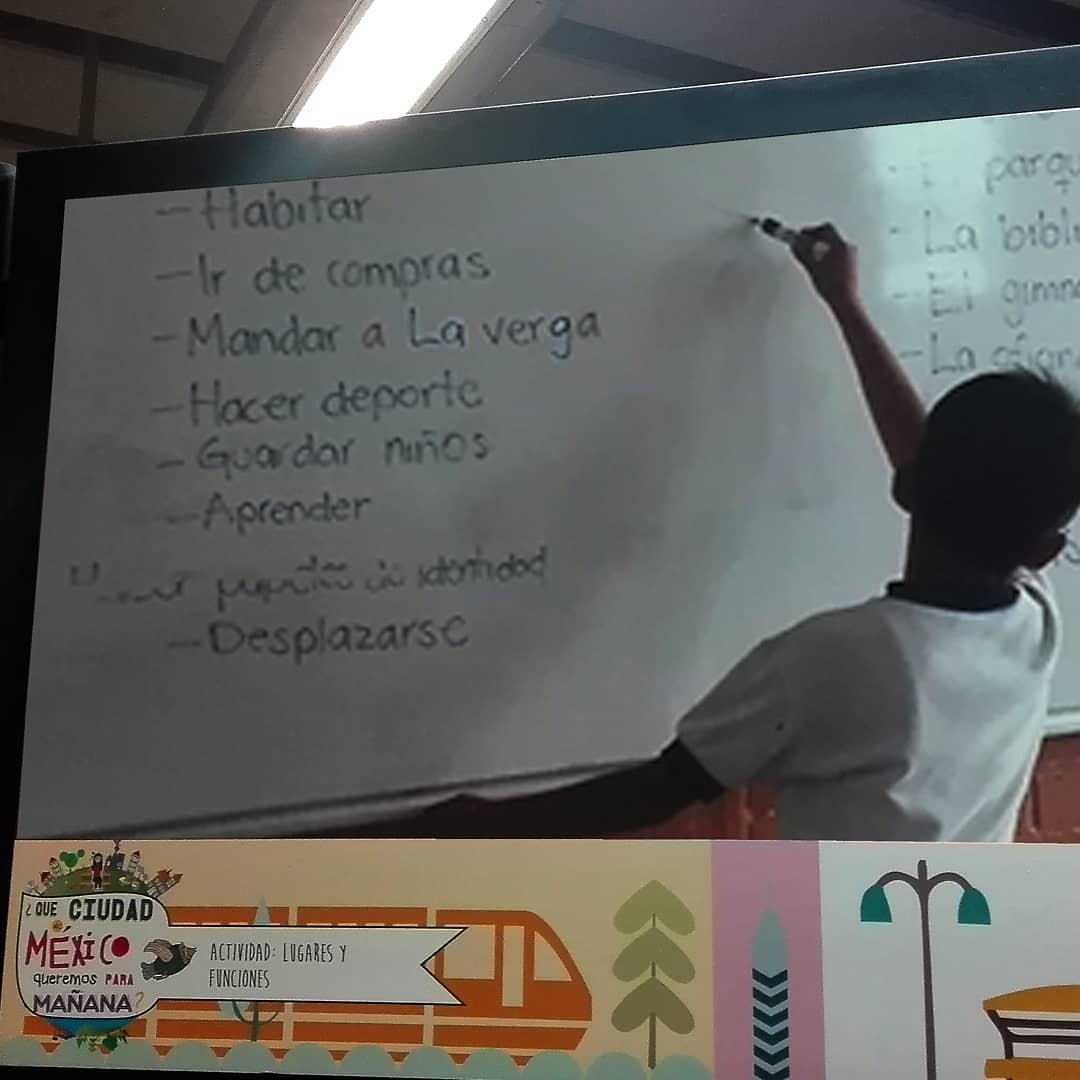 - Habitar
- Ir de compras
- Mandar a La verga
- Hacer deporte
- Guardar niños
- Aprender
identidad
- Desplazarse
parqu
- La bibli
- El gimna
- La
¿QUE CIUDAD
de
MÉXICO
queremos PARA
MAÑANA?
ACTIVIDAD: LUGARES Y
FUNCIONES